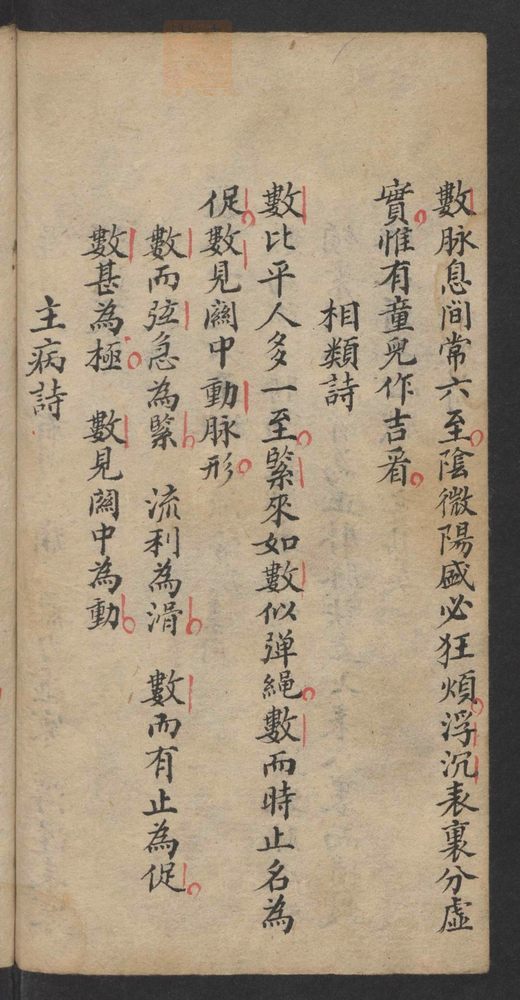 數脉息間常六至陰微陽盛必狂煩浮沉表裏分虛
實惟有童兒作吉看
相類詩
數比平人多一至緊來如數似弹繩數而時止名為
促數見關中動脉形
數而弦急為緊　流利為滑　數而有止為促
數甚為極　數見關中為動
主病詩